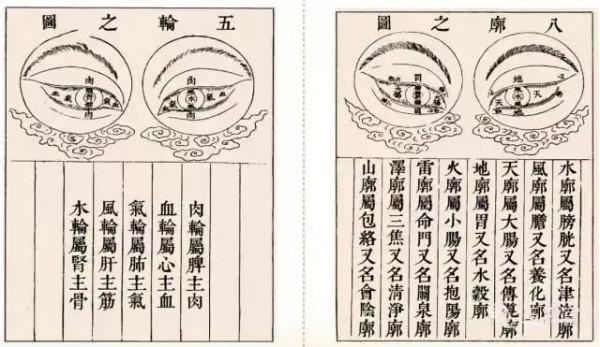 五輪之圖
肉
氣
肝
肉
肉
氣
水
氣
肉
肉輪屬脾主肉
血輪屬心主血
氣輪屬肺主氣
風輪屬肝主筋
水輪屬腎主骨
八廓之圖
地
天
水
天
地
胃
水廓屬膀胱又名津液廓
風廓屬膽又名養化廓
天廓屬大腸又名傳送廓
地廓屬胃又名水穀廓
火廓屬小腸又名抱陽廓
雷廓屬命門又名關泉廓
澤廓屬三焦又名清淨廓
山廓屬包絡又名會陰廓